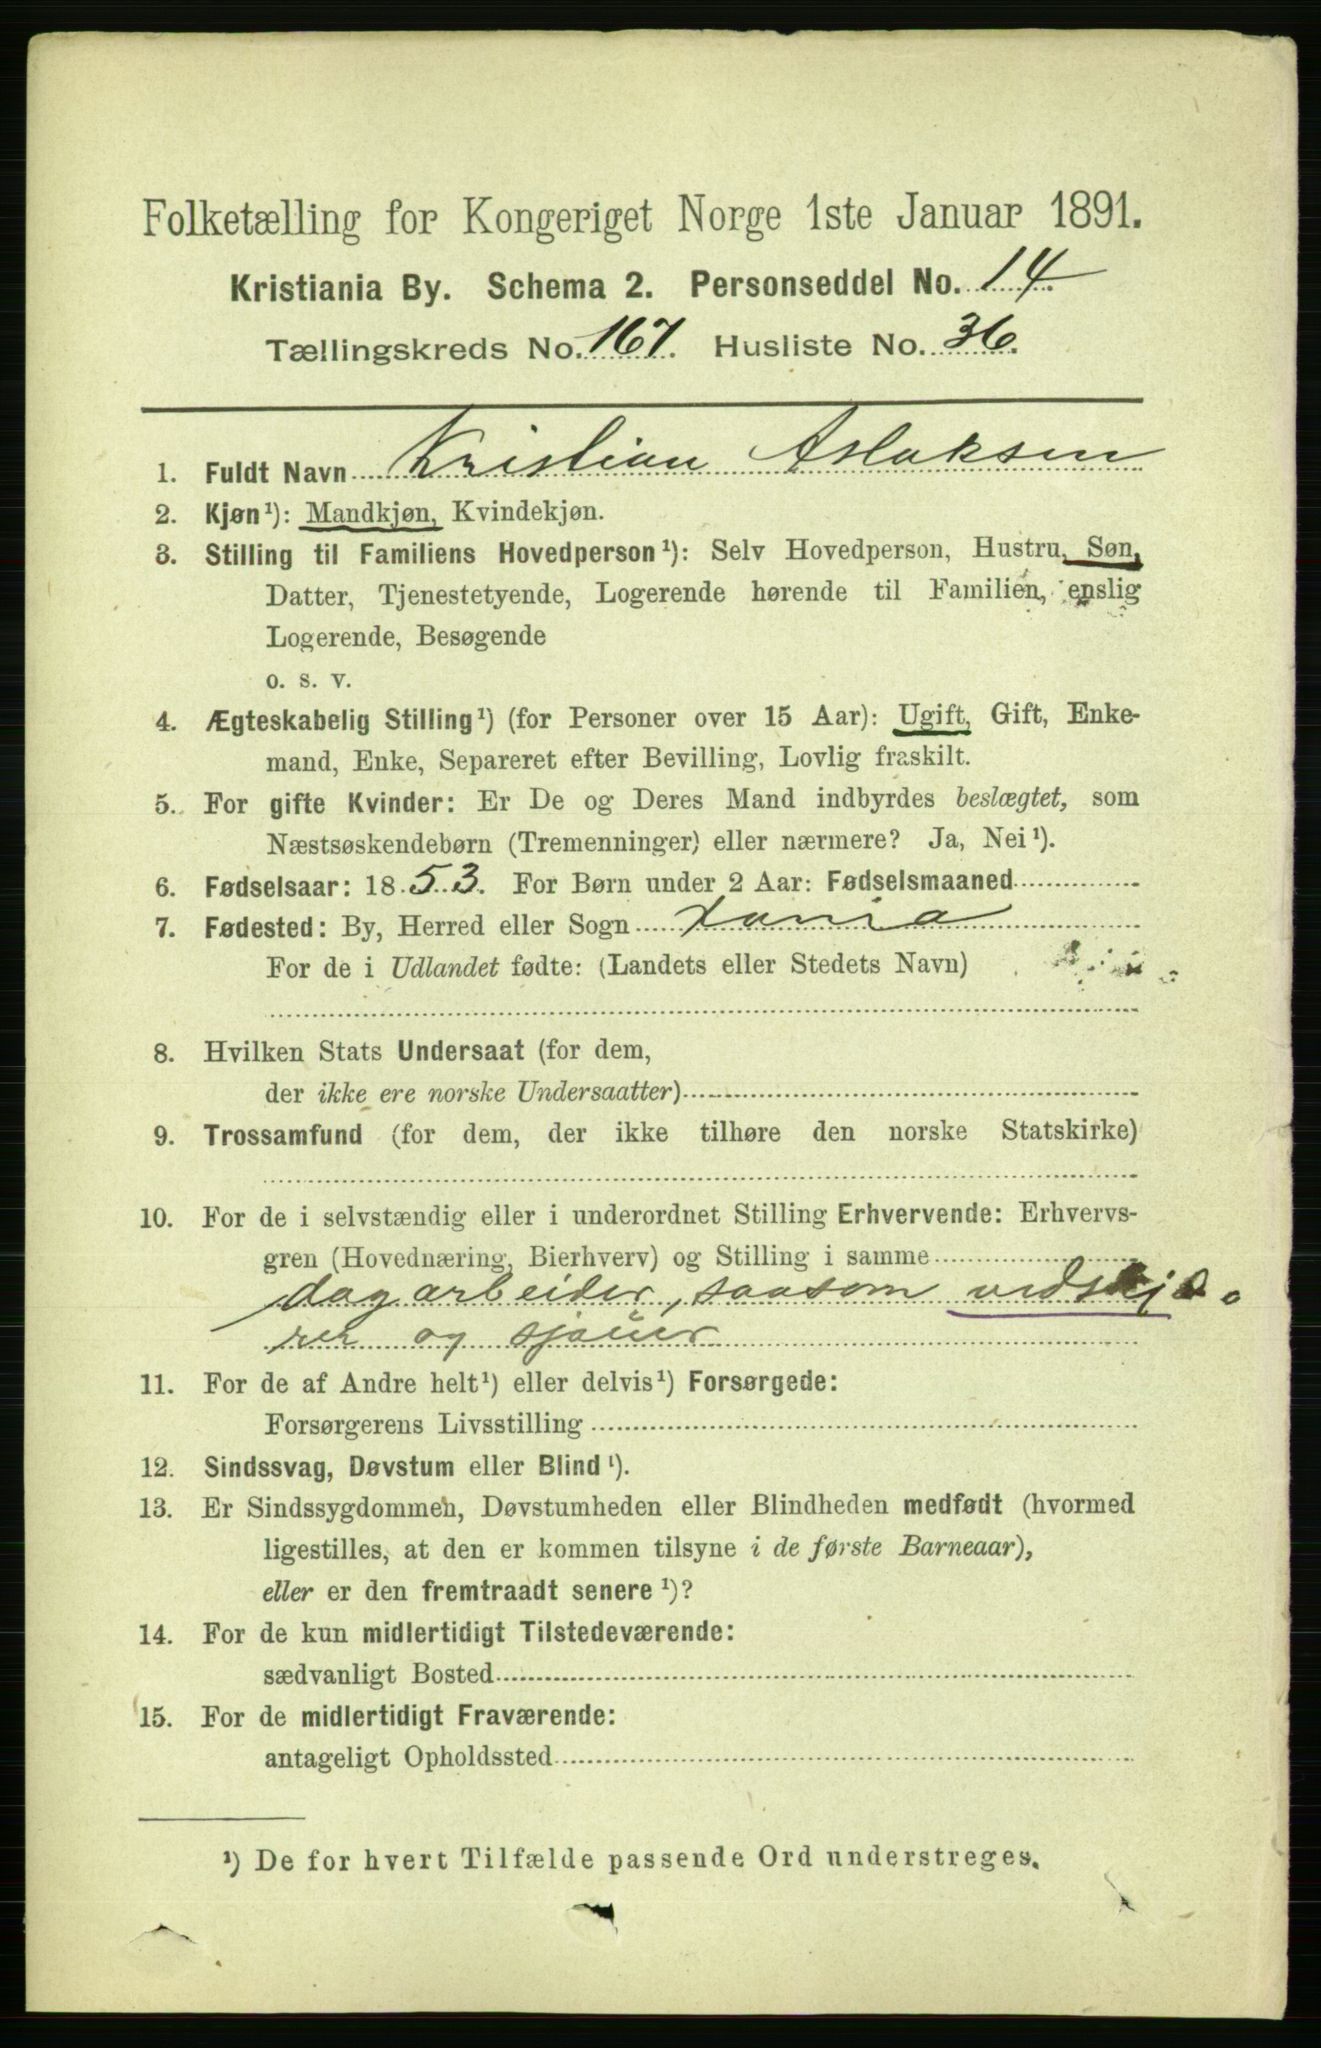 Folketælling for Kongeriget Norge 1ste Januar 1891.
Kristiania By. Schema 2. Personseddel No. 14
Tællingskreds No. 167. Husliste No. 36.
1. Fuldt Navn Kristian Aslaksen
2. Kjøn¹): Mandkjøn, Kvindekjøn.
3. Stilling til Familiens Hovedperson¹): Selv Hovedperson, Hustru, Søn,
Datter, Tjenestetyende, Logerende hørende til Familien, enslig
Logerende, Besøgende
o. s. v.
4. Ægteskabelig Stilling¹) (for Personer over 15 Aar): Ugift, Gift, Enke-
mand, Enke, Separeret efter Bevilling, Lovlig fraskilt.
5. For gifte Kvinder: Er De og Deres Mand indbyrdes beslægtet, som
Næstsøskendebørn (Tremenninger) eller nærmere? Ja, Nei¹).
6. Fødselsaar: 1853. For Børn under 2 Aar: Fødselsmaaned
7. Fødested: By, Herred eller Sogn Xania
For de i Udlandet fødte: (Landets eller Stedets Navn)
8. Hvilken Stats Undersaat (for dem,
der ikke ere norske Undersaatter)
9. Trossamfund (for dem, der ikke tilhøre den norske Statskirke)
10. For de i selvstændig eller i underordnet Stilling Erhvervende: Erhvervs-
gren (Hovednæring, Bierhverv) og Stilling i samme
dagarbeider, saasom vedskjæ
rer og sjauer
11. For de af Andre helt¹) eller delvis¹) Forsørgede:
Forsørgerens Livsstilling
12. Sindssvag, Døvstum eller Blind¹).
13. Er Sindssygdommen, Døvstumheden eller Blindheden medfødt (hvormed
ligestilles, at den er kommen tilsyne i de første Barneaar),
eller er den fremtraadt senere¹)?
14. For de kun midlertidigt Tilstedeværende:
sædvanligt Bosted
15. For de midlertidigt Fraværende:
antageligt Opholdssted
¹) De for hvert Tilfælde passende Ord understreges.